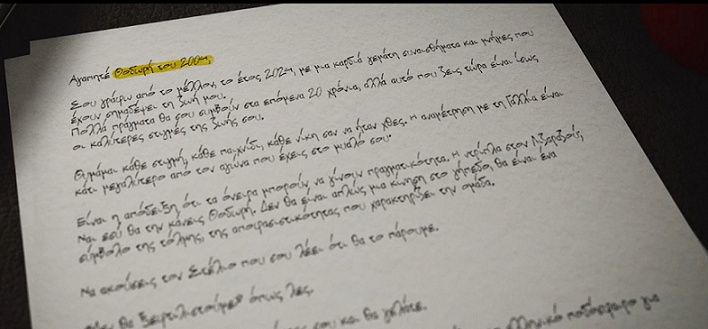 Αγαπητέ Θοδωρή του 2004,
Σου γράφω από το μέλλον, το έτος 2024, με μια καρδιά γεμάτη συναισθήματα και μνήμες που
έχουν σημαδέψει τη ζωή μου.
Πολλά πράγματα θα σου συμβούν στα επόμενα 20 χρόνια, αλλά αυτό που ζεις τώρα είναι ίσως
οι καλύτερες στιγμές της ζωής σου.
Θυμάμαι κάθε στιγμή, κάθε παιχνίδι, κάθε νίκη σαν να ήταν χθες. Η αναμέτρηση με τη Γαλλία είναι
κάτι μεγαλύτερο από τον αγώνα που έχεις στο μυαλό σου.
Είναι η απόδειξη ότι τα όνειρα μπορούν να γίνουν πραγματικότητα. Η ντρίπλα στον Λιζαραζού,
Ναι εσύ θα την κάνεις Θοδωρή. Δεν θα είναι απλώς μια κίνηση στο γήπεδο, θα είναι ένα
σύμβολο της τόλμης, της αποφασιστικότητας που χαρακτηρίζει την ομάδα.
Να ακούσεις τον Στέλιο που σου λέει ότι θα το πάρουμε.
θα ξεφτιλιστούμε" όπως λες.
σου και θα γελάτε.
ελληνικό ποδόσφαιρο για